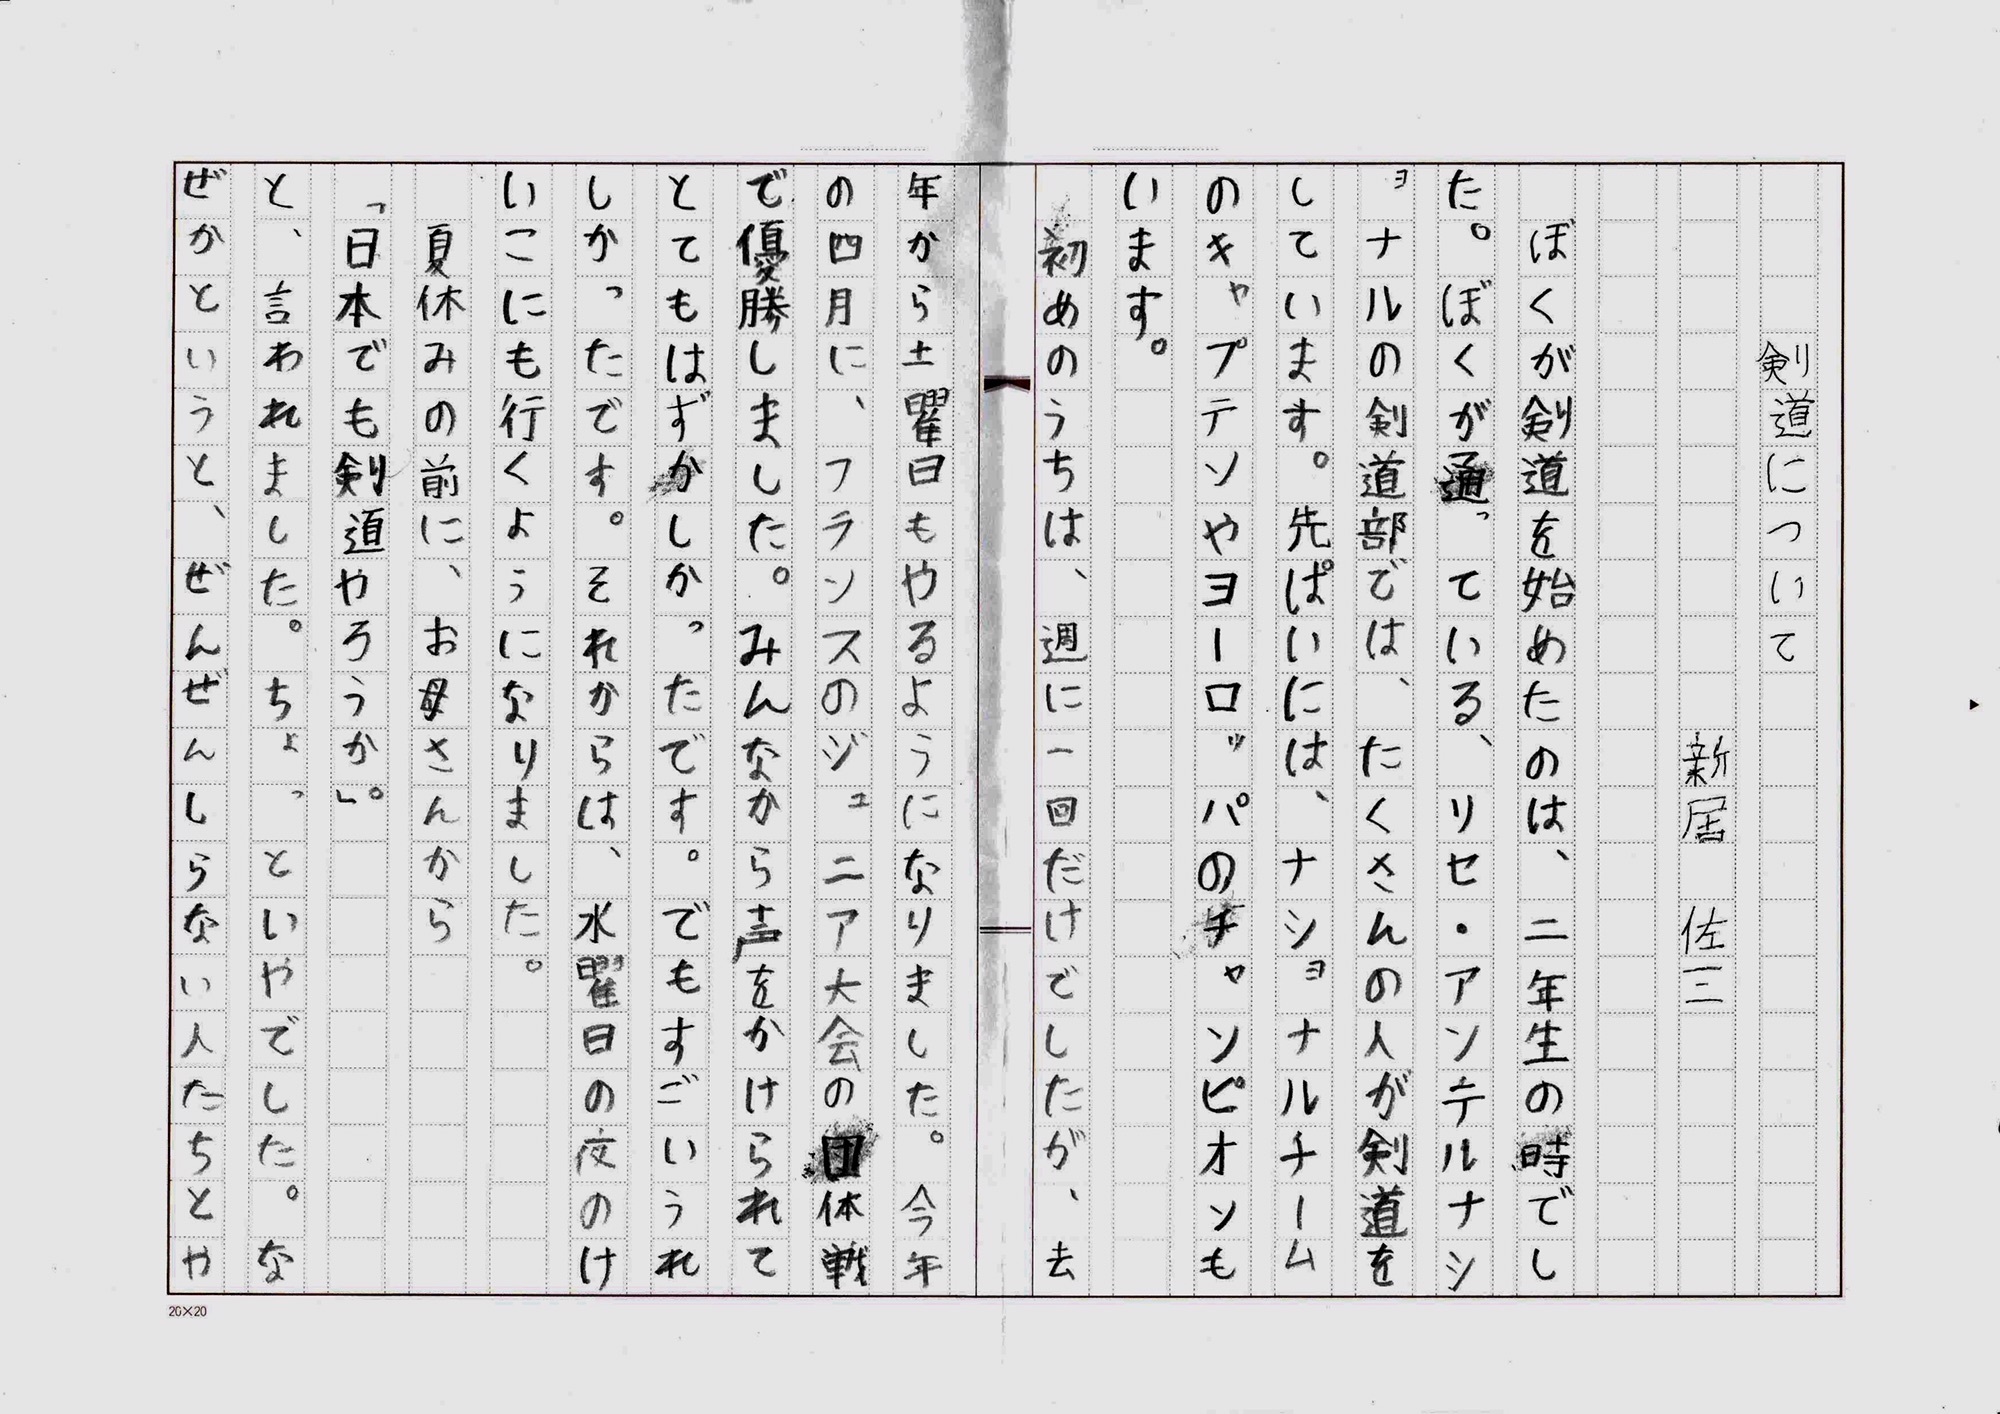 剣道について
新居 佐三
ぼくが剣道を始めたのは、二年生の時でし
た。ぼくが通っている、リセ・アンテルナシ
ョナルの剣道部では、たくさんの人が剣道を
しています。先ぱいには、ナショナルチーム
のキャプテンやヨーロッパのチャンピオンも
います。
初めのうちは、週に一回だけでしたが、去
年から土曜日もやるようになりました。今年
の四月に、フランスのジュニア大会の団体戦
で優勝しました。みんなから声をかけられて
とてもはずかしかったです。でもすごいうれ
しかったです。それからは、水曜日の夜のけ
いこにも行くようになりました。
夏休みの前に、お母さんから
「日本でも剣道やろうか。」
と、言われました。ちょっといやでした。な
ぜかというと、ぜんぜんしらない人たちとや
20×20